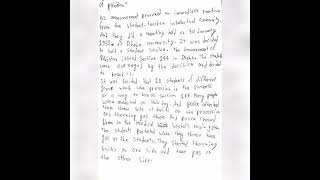 of Pakistan"
As announcement provoked an immediate reaction
from the student-teacher intellectual community.
And they did a meeting held on 30 January,
1952 at Dhaka University. It was decided
to hold a student strike. The Government of
Pakistan issued section 144 in Dhaka. The students
were outraged by the decision and decided
to break it.
It was decided that 10 students of different
group would the procession in the streets
as a way to break section 144. Many people
were arrested on this day. And police attacked
then three sets of on the procession
and throwing gas there. And police chased
them to the medical hostel's main gate.
The students Protested when they threw tear
gas at the students. They started throwing
bricks on one side and tear gas on
the other side.